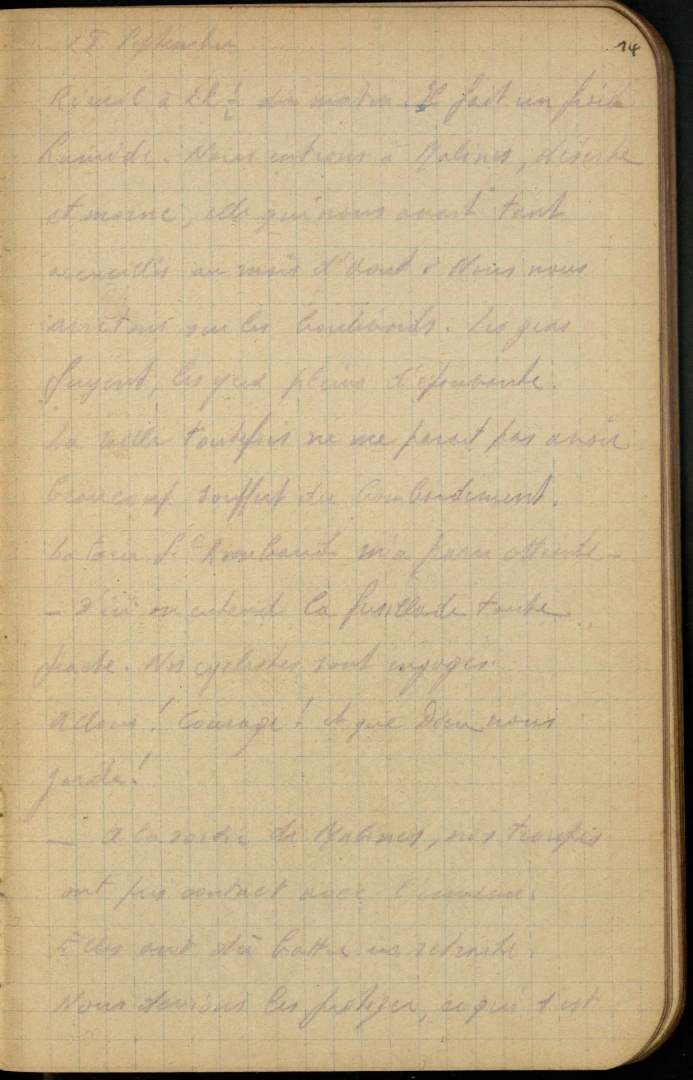 14
Septembre
Réveil à 2h ½ du matin. Il fait un froid
humide. Nous entrons à Malines, déserte
et morne, elle qui nous avait tant
accueillis au mois d'août. Nous nous
arrêtons sur les boulevards. Les gens
fuyent, les yeux pleins d'épouvante.
La ville toutefois ne me parait pas avoir
beaucoup souffert du bombardement.
La tour St Rombaut m'a paru atteinte.
— D'ici on entend la fusillade toute
proche. Nos cyclistes sont engagés.
Allons! Courage! et que Dieu nous
garde!
— A la sortie de Malines, nos troupes
ont pris contact avec l'ennemi.
Elles ont dû battre en retraite.
Nous devions les protéger, ce qui s'est